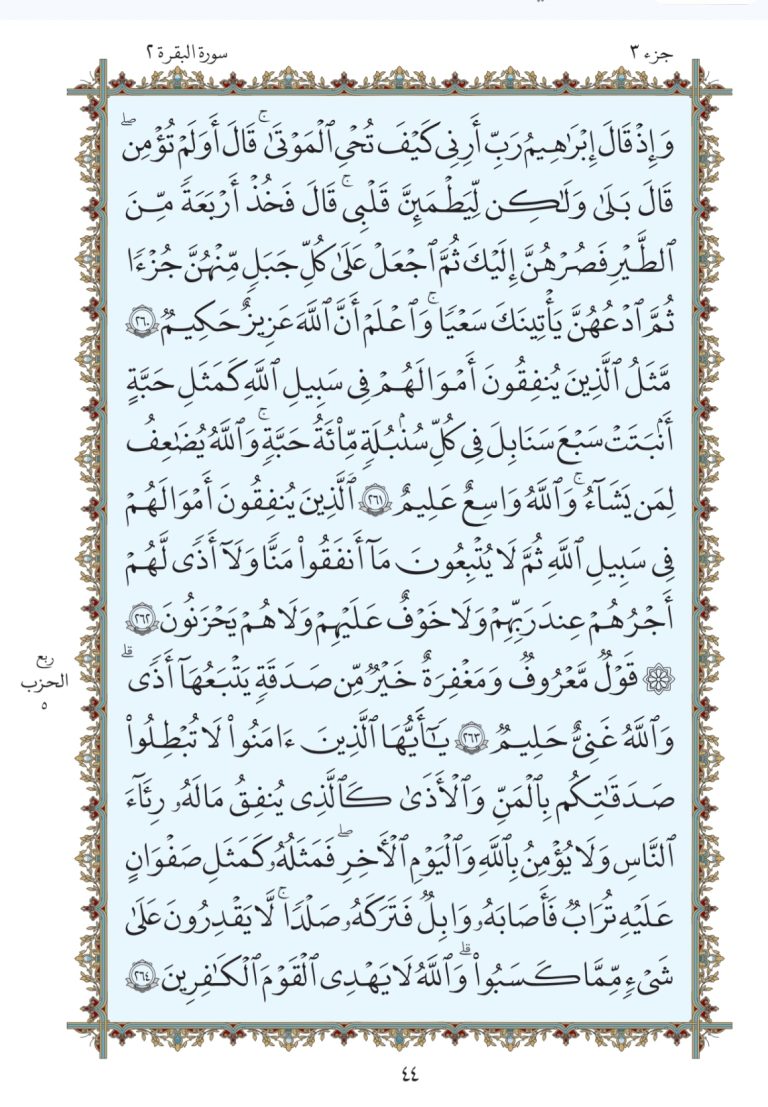 سورة البقرة ٢
جزء ٣
وَإِذۡ قَالَ إِبۡرَٰهِـۧمُ رَبِّ أَرِنِي كَيۡفَ تُحۡيِ ٱلۡمَوۡتَىٰۖ قَالَ أَوَلَمۡ تُؤۡمِنۖ
قَالَ بَلَىٰ وَلَٰكِن لِّيَطۡمَئِنَّ قَلۡبِيۖ قَالَ فَخُذۡ أَرۡبَعَةٗ مِّنَ
ٱلطَّيۡرِ فَصُرۡهُنَّ إِلَيۡكَ ثُمَّ ٱجۡعَلۡ عَلَىٰ كُلِّ جَبَلٖ مِّنۡهُنَّ جُزۡءٗا
ثُمَّ ٱدۡعُهُنَّ يَأۡتِينَكَ سَعۡيٗاۚ وَٱعۡلَمۡ أَنَّ ٱللَّهَ عَزِيزٌ حَكِيمٞ ٢٦٠
مَّثَلُ ٱلَّذِينَ يُنفِقُونَ أَمۡوَٰلَهُمۡ فِي سَبِيلِ ٱللَّهِ كَمَثَلِ حَبَّةٍ
أَنۢبَتَتۡ سَبۡعَ سَنَابِلَ فِي كُلِّ سُنۢبُلَةٖ مِّاْئَةُ حَبَّةٖۗ وَٱللَّهُ يُضَٰعِفُ
لِمَن يَشَآءُۚ وَٱللَّهُ وَٰسِعٌ عَلِيمٌ ٢٦١ ٱلَّذِينَ يُنفِقُونَ أَمۡوَٰلَهُمۡ
فِي سَبِيلِ ٱللَّهِ ثُمَّ لَا يُتۡبِعُونَ مَآ أَنفَقُواْ مَنّٗا وَلَآ أَذٗى لَّهُمۡ
أَجۡرُهُمۡ عِندَ رَبِّهِمۡ وَلَا خَوۡفٌ عَلَيۡهِمۡ وَلَا هُمۡ يَحۡزَنُونَ ٢٦٢
۞ قَوۡلٞ مَّعۡرُوفٞ وَمَغۡفِرَةٌ خَيۡرٞ مِّن صَدَقَةٖ يَتۡبَعُهَآ أَذٗىۗ
وَٱللَّهُ غَنِيٌّ حَلِيمٞ ٢٦٣ يَٰٓأَيُّهَا ٱلَّذِينَ ءَامَنُواْ لَا تُبۡطِلُواْ
صَدَقَٰتِكُم بِٱلۡمَنِّ وَٱلۡأَذَىٰ كَٱلَّذِي يُنفِقُ مَالَهُۥ رِئَآءَ
ٱلنَّاسِ وَلَا يُؤۡمِنُ بِٱللَّهِ وَٱلۡيَوۡمِ ٱلۡأٓخِرِۖ فَمَثَلُهُۥ كَمَثَلِ صَفۡوَانٍ
عَلَيۡهِ تُرَابٞ فَأَصَابَهُۥ وَابِلٞ فَتَرَكَهُۥ صَلۡدٗاۖ لَّا يَقۡدِرُونَ عَلَىٰ
شَيۡءٖ مِّمَّا كَسَبُواْۗ وَٱللَّهُ لَا يَهۡدِي ٱلۡقَوۡمَ ٱلۡكَٰفِرِينَ ٢٦٤
ربع
الحزب
٥
٤٤